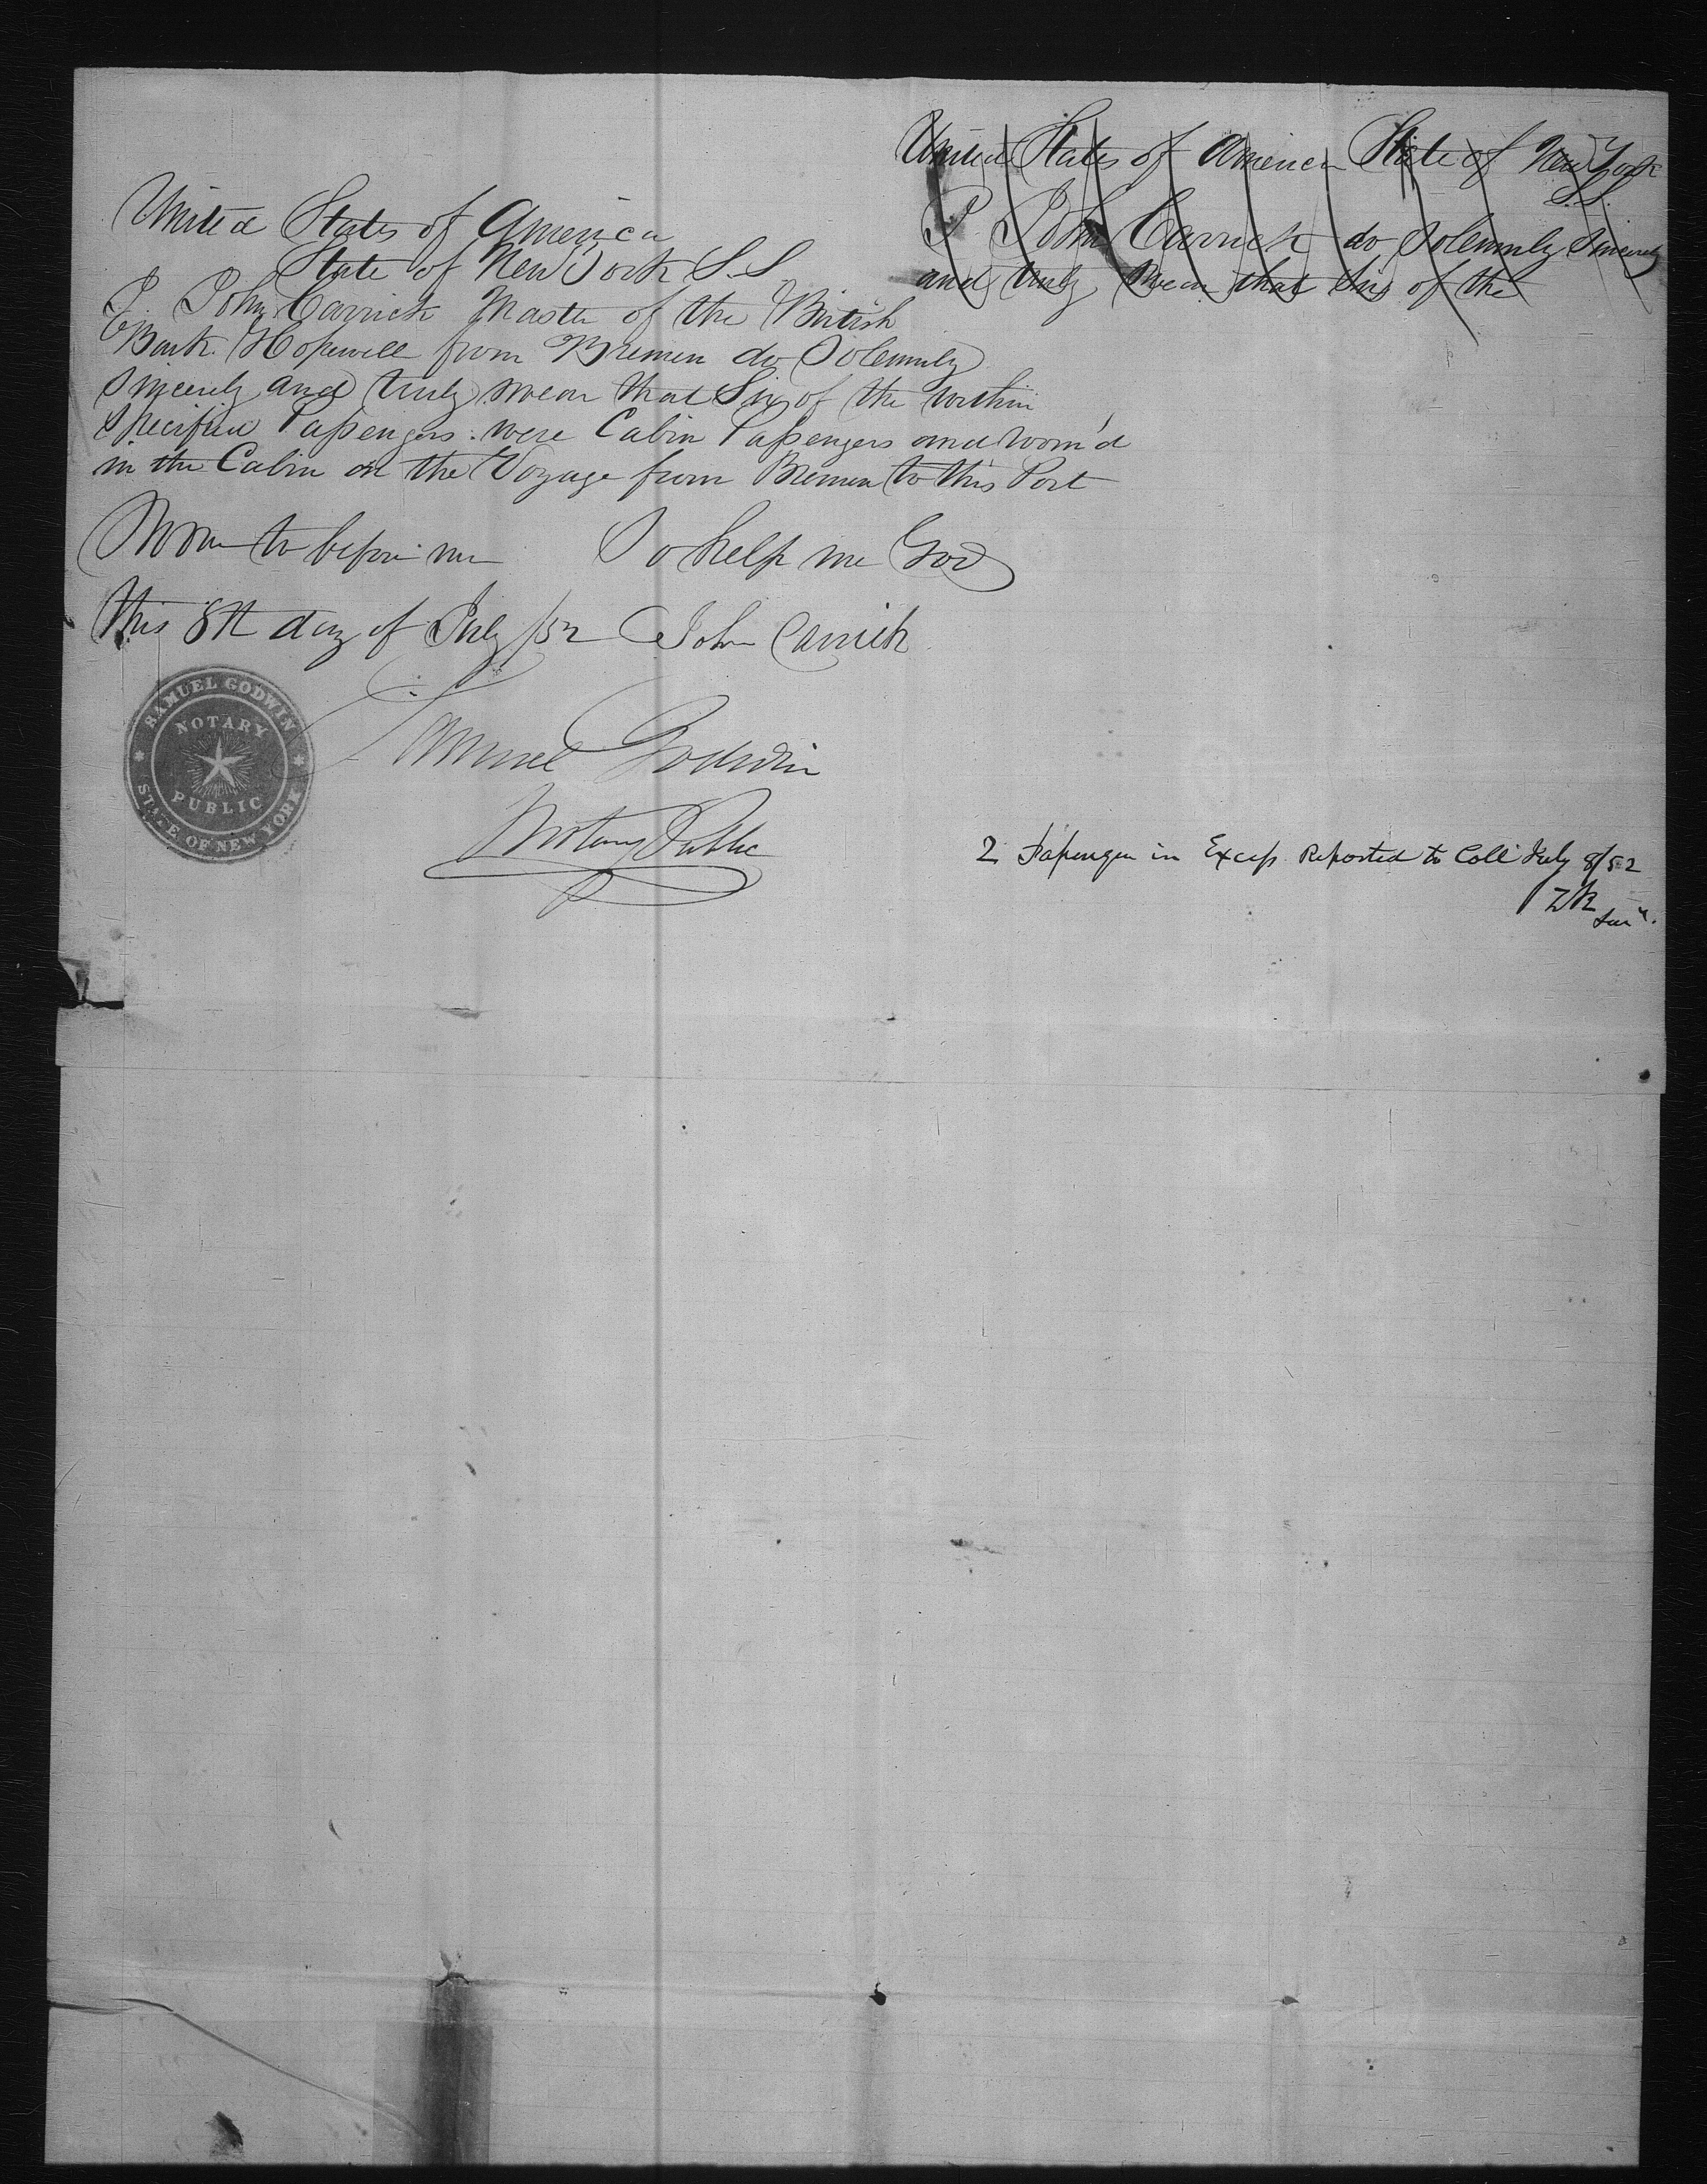 United States of America State of New York
S.S.
I John Carrick do Solemnly Sincerely
and truly Swear that Six of the
United States of America
State of New York S.S.
I John Carrick Master of the British
Bark Hopewell from Bremen do Solemnly
Sincerely and truly swear that Six of the within
Specified Passengers were Cabin Passengers and room'd
in the Cabin on the Voyage from Bremen to this Port
Sworn to before me So help me God
this 8th day of July /52 John Carrick
SAMUEL GODWIN
NOTARY
PUBLIC
STATE OF NEW YORK
Samuel Godwin
Notary Public
2 Passengers in Excess Reported to Coll July 8/52